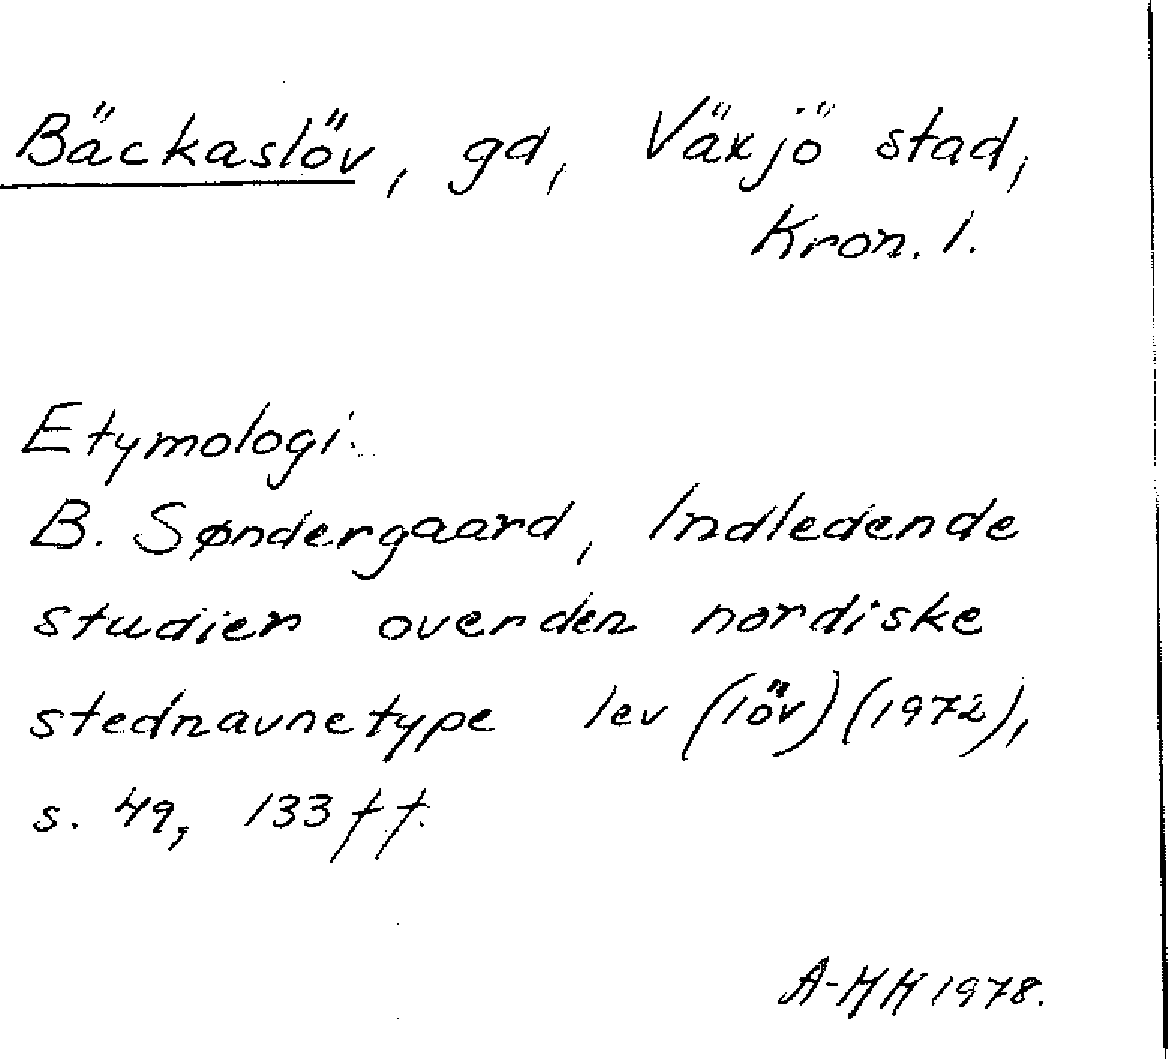 Bäckaslöv, gd, Växjö stad,
Kron. l.
Etymologi:
B. Søndergaard, Indledende
studier over den nordiske
stednavnetype lev (löv) (1972),
s. 49, 133 ff.
A-HH 1978.